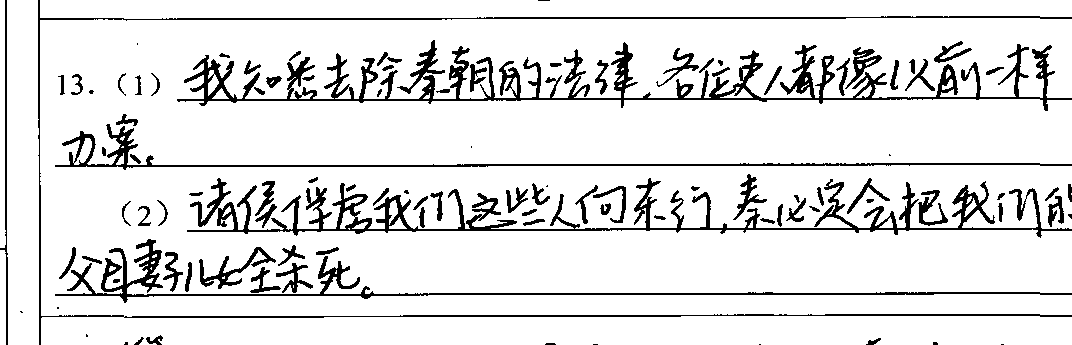 13.（1）我知悉去除秦朝的法律，各位吏人都像以前一样
办案。
（2）诸侯俘虏我们这些人向东行，秦必定会把我们的
父母妻子儿女全杀死。